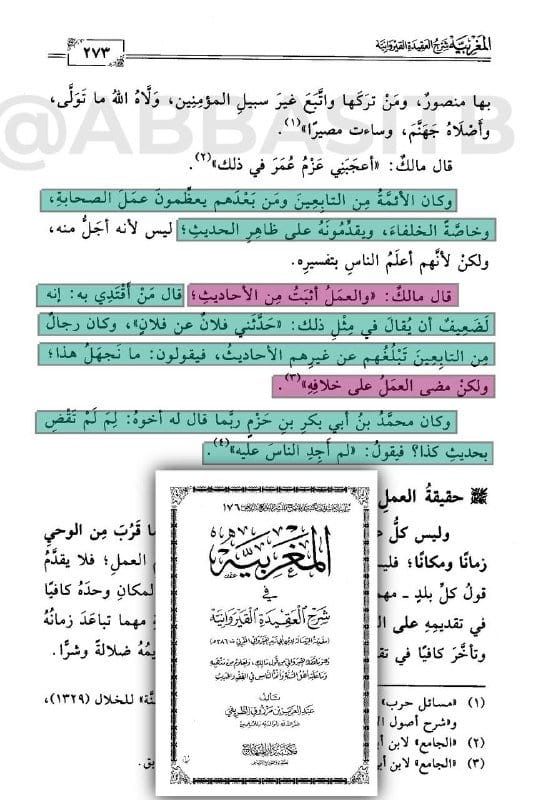 المغربيّة شرح العقيدة القيروانيّة
٢٧٣
@ABBASITB
بها منصورٌ، ومَنْ تركَها واتَّبَعَ غيرَ سبيلِ المؤمِنِين، ولَّاهُ اللهُ ما تَوَلَّى،
وأَصْلَاهُ جَهَنَّمَ، وساءت مصيرًا»(١).
قال مالكٌ: «أعجَبَني عَزْمُ عُمَرَ في ذلك»(٢).
وكان الأئمَّةُ مِن التابعِينَ ومَن بَعْدَهم يعظِّمونَ عملَ الصحابةِ،
وخاصَّةً الخلفاءَ، ويقدِّمُونَهُ على ظاهِرِ الحديثِ؛ ليس لأنه أجَلُّ منه،
ولكنْ لأنَّهم أعلَمُ الناسِ بتفسيرِه.
قال مالكٌ: «والعمَلُ أثبَتُ مِن الأحاديثِ؛ قال مَنْ أَقْتَدِي به: إنه
لَضَعِيفٌ أن يُقالَ في مِثْلِ ذلك: «حَدَّثَني فلانٌ عن فلانٍ»، وكان رجالٌ
مِن التابِعِينَ تَبْلُغُهم عن غيرِهم الأحاديثُ، فيقولون: ما نَجهَلُ هذا؛
ولكنْ مضى العمَلُ على خلافِهِ»(٣).
وكان محمَّدُ بنُ أبي بكرِ بنِ حَزْمٍ ربَّما قال له أخوهُ: لِمَ لَمْ تَقْضِ
بحديثِ كذا؟ فيقولُ: «لم أَجِدِ الناسَ عليه»(٤).
حقيقةُ العملِ
وليس كلُّ
ما قَرُبَ مِن الوحيِ
زمانًا ومكانًا؛
العملِ؛ فلا يقدَّمُ
قولُ كلِّ بلدٍ ـ مهم
المكانِ وحدَهُ كافيًا
في تقديمِهِ على
مهما تباعَدَ زمانُهُ
وتأخَّرَ كافيًا في تق
ضلالةً وشرًّا.
(١) «مسائل حرب»
للخلال (١٣٢٩)،
و«شرح أصول
(٢) «الجامع» لابن أبي
(٣) «الجامع» لابن أبي
١٧٦
المغربيّة
في
شرح العقيدة القيروانيّة
تأليف
عبد العزيز بن مرزوق الطريفي
مكتبة دار المنهاج